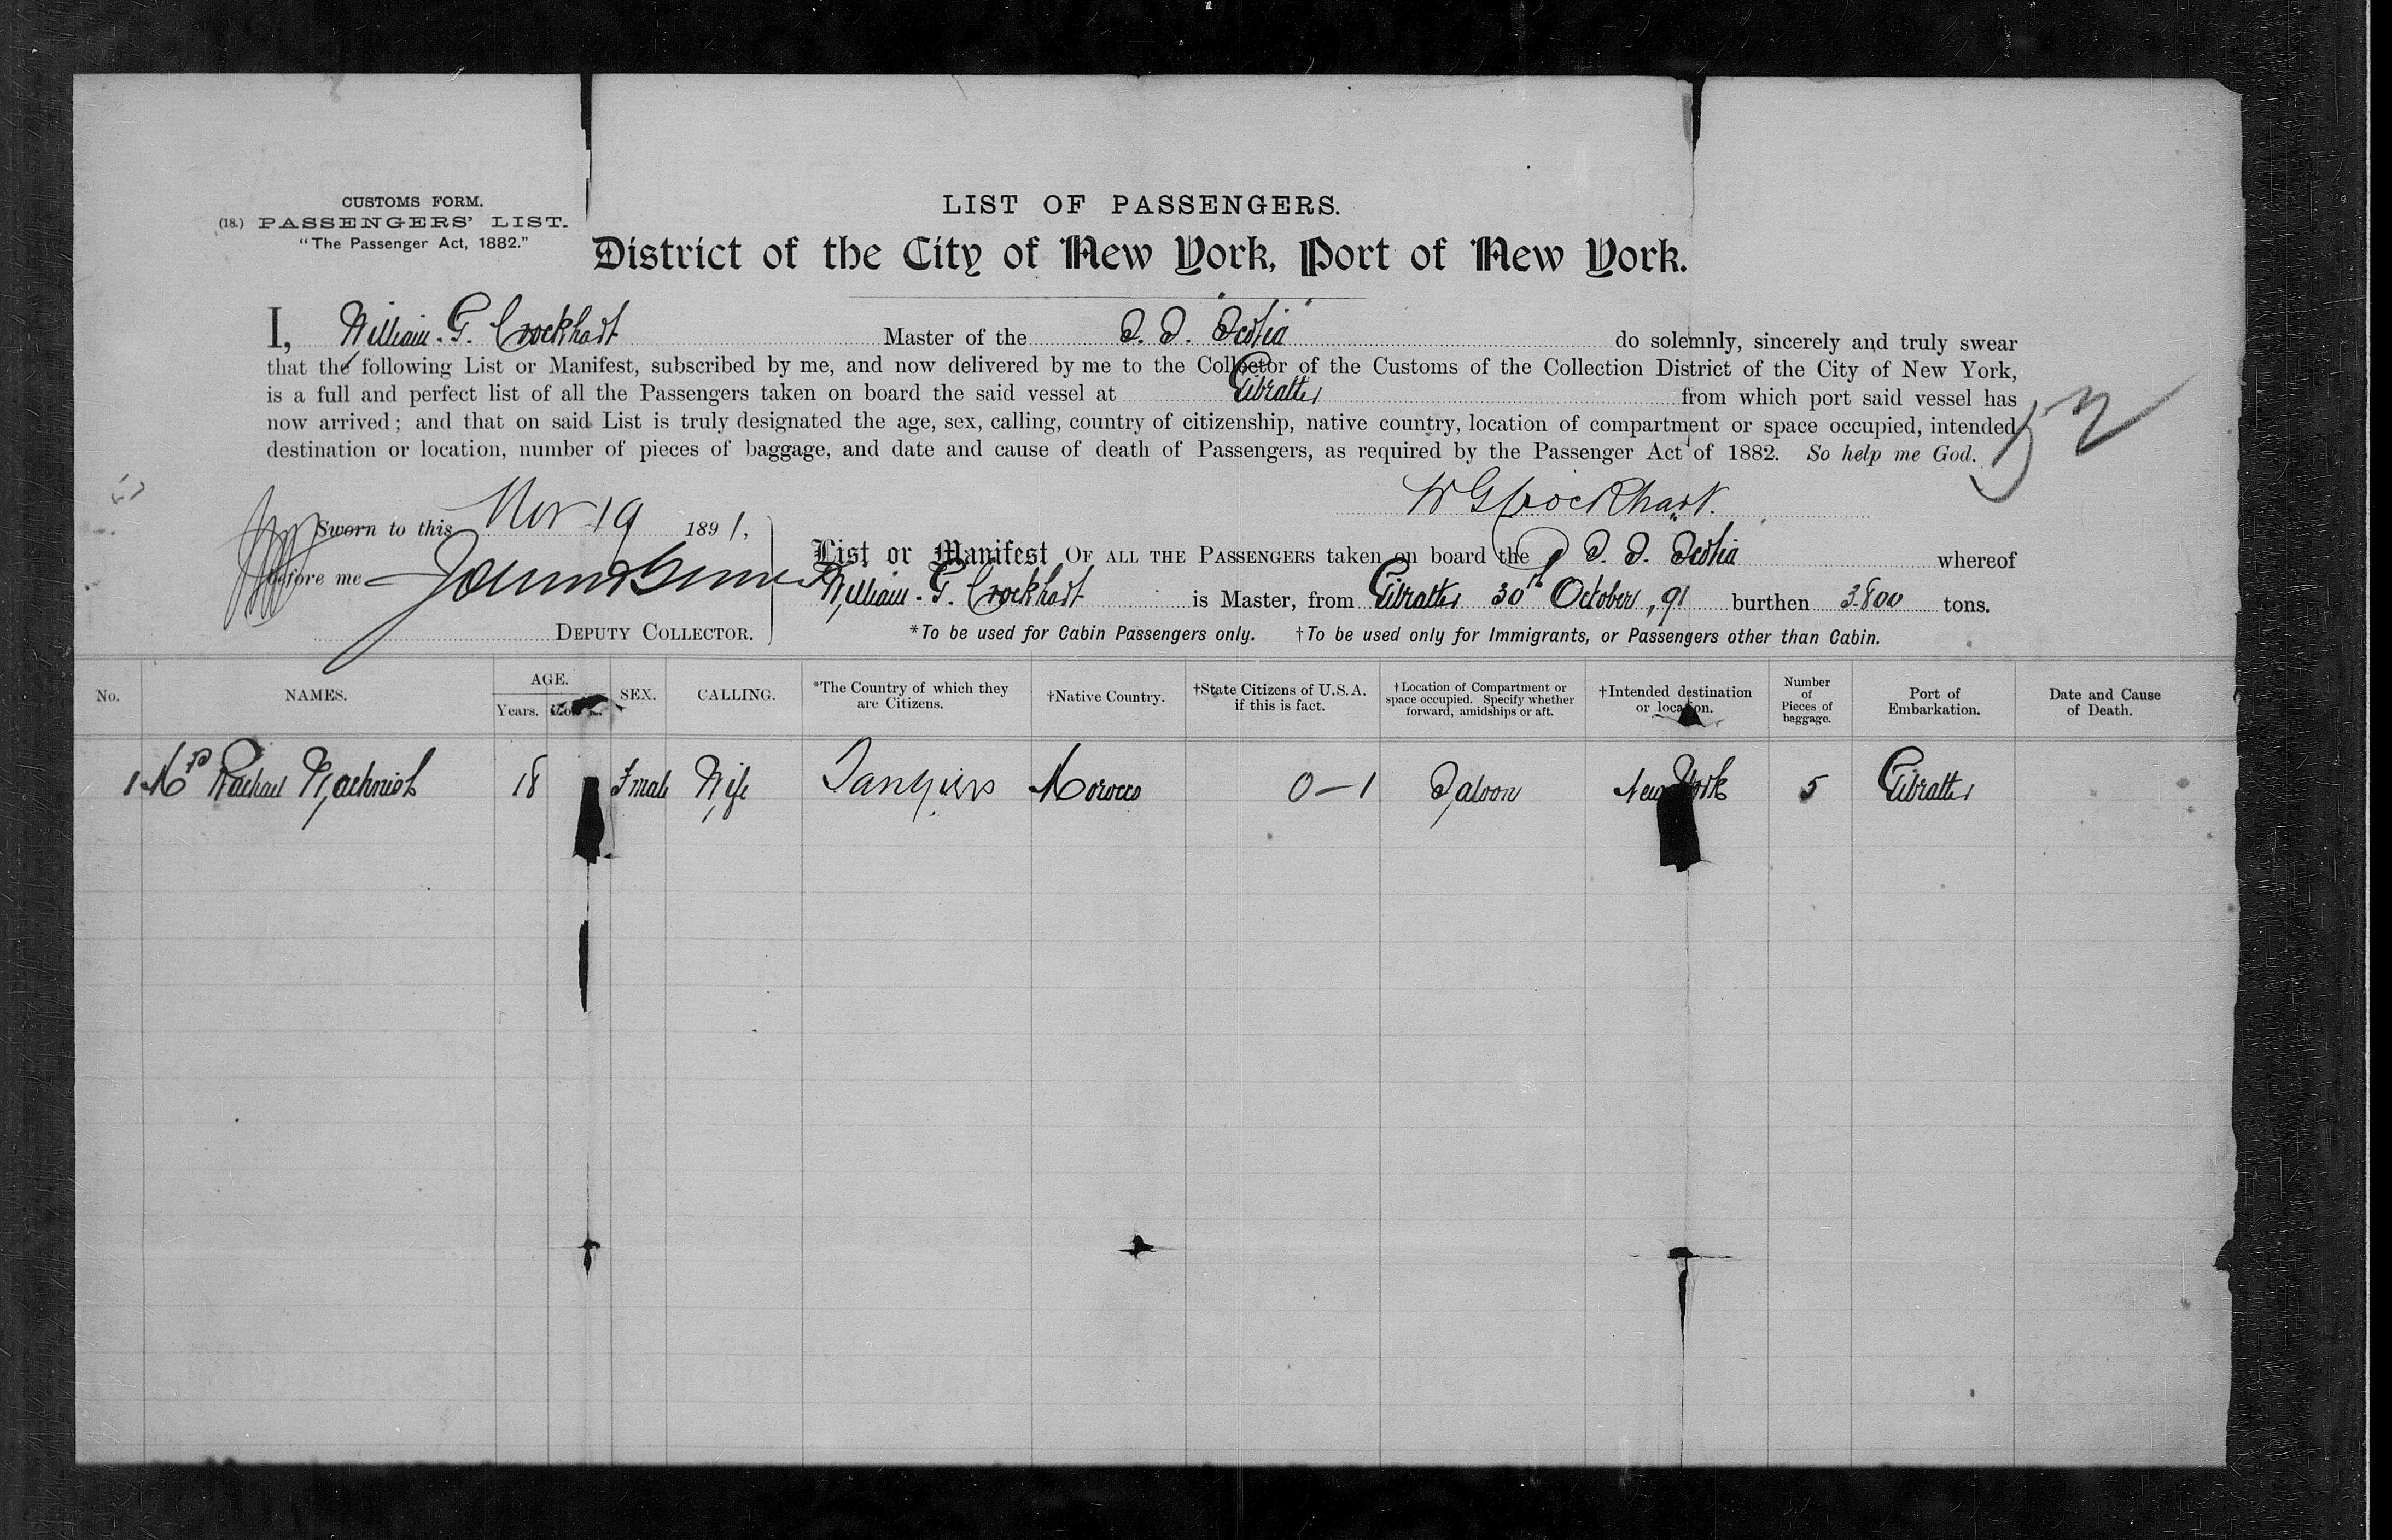 CUSTOMS FORM.
(18.) PASSENGERS' LIST.
"The Passenger Act, 1882."
LIST OF PASSENGERS.
District of the City of New York, Port of New York.
I, William. G. Crockhart Master of the S. S. "Scotia" do solemnly, sincerely and truly swear
that the following List or Manifest, subscribed by me, and now delivered by me to the Collector of the Customs of the Collection District of the City of New York,
is a full and perfect list of all the Passengers taken on board the said vessel at Gibralter from which port said vessel has
now arrived; and that on said List is truly designated the age, sex, calling, country of citizenship, native country, location of compartment or space occupied, intended
destination or location, number of pieces of baggage, and date and cause of death of Passengers, as required by the Passenger Act of 1882. So help me God.
52
W G Crockhart.
Sworn to this Nov 19 1891,
before me
DEPUTY COLLECTOR.
List or Manifest OF ALL THE PASSENGERS taken on board the S. S. Scotia whereof
William. G. Crockhart is Master, from Gibralter 30th October, 91 burthen 3.800 tons.
*To be used for Cabin Passengers only. †To be used only for Immigrants, or Passengers other than Cabin.
No. NAMES. AGE. Years. SEX. CALLING. *The Country of which they are Citizens. †Native Country. †State Citizens of U.S.A. if this is fact. †Location of Compartment or space occupied. Specify whether forward, amidships or aft. †Intended destination or location. Number of Pieces of baggage. Port of Embarkation. Date and Cause of Death.
1 Mrs Rachael 18 Fmale Wife Tangiers Morocco 0-1 Saloon New York 5 Gibralter